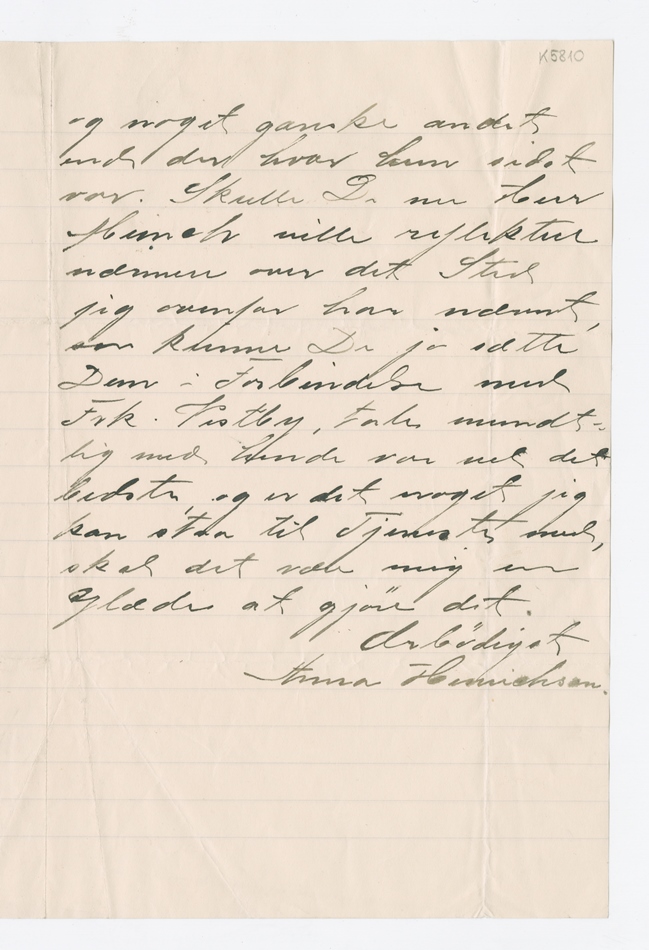 K5810
og noget ganske andet
end der hvor hun sidst
var. Skulle De nu Herr
Münch ville reflektere
nærmere over det Sted
jeg ovenfor har nævnt,
saa kunne De jo sætte
Dem i Forbindelse med
Frk. Vestby, tale mundt-
lig med hende var vel det
bedste, og er det noget jeg
kan staa til Tjeneste med,
skal det være mig en
Glæde at gjöre det.
Ærbödigst
Anna Hinrichsen.